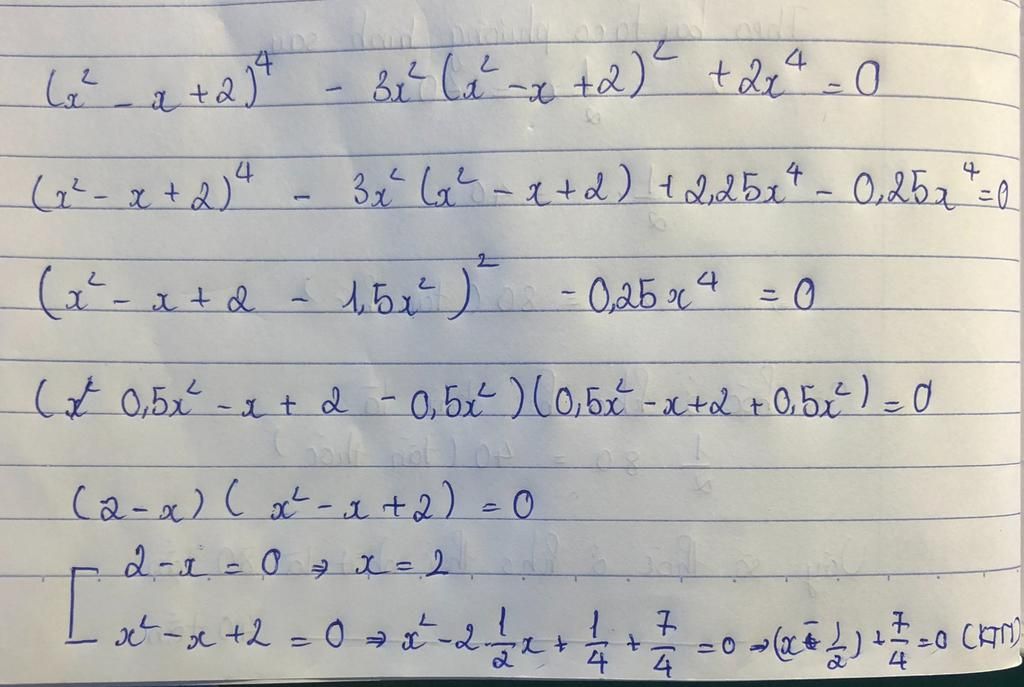 (x² - x + 2)⁴ - 3x² (x² - x + 2)² + 2x⁴ = 0
(x² - x + 2)⁴ - 3x² (x² - x + 2) + 2,25x⁴ - 0,25x⁴ = 0
(x² - x + 2 - 1,5x²)² - 0,25x⁴ = 0
(0,5x² - x + 2 - 0,5x²)(0,5x² - x + 2 + 0,5x²) = 0
(2 - x)(x² - x + 2) = 0
[ 2 - x = 0 ⇒ x = 2
x² - x + 2 = 0 ⇒ x² - 2 1/2 x + 1/4 + 7/4 = 0 ⇒ (x - 1/2) + 7/4 = 0 (KTM)